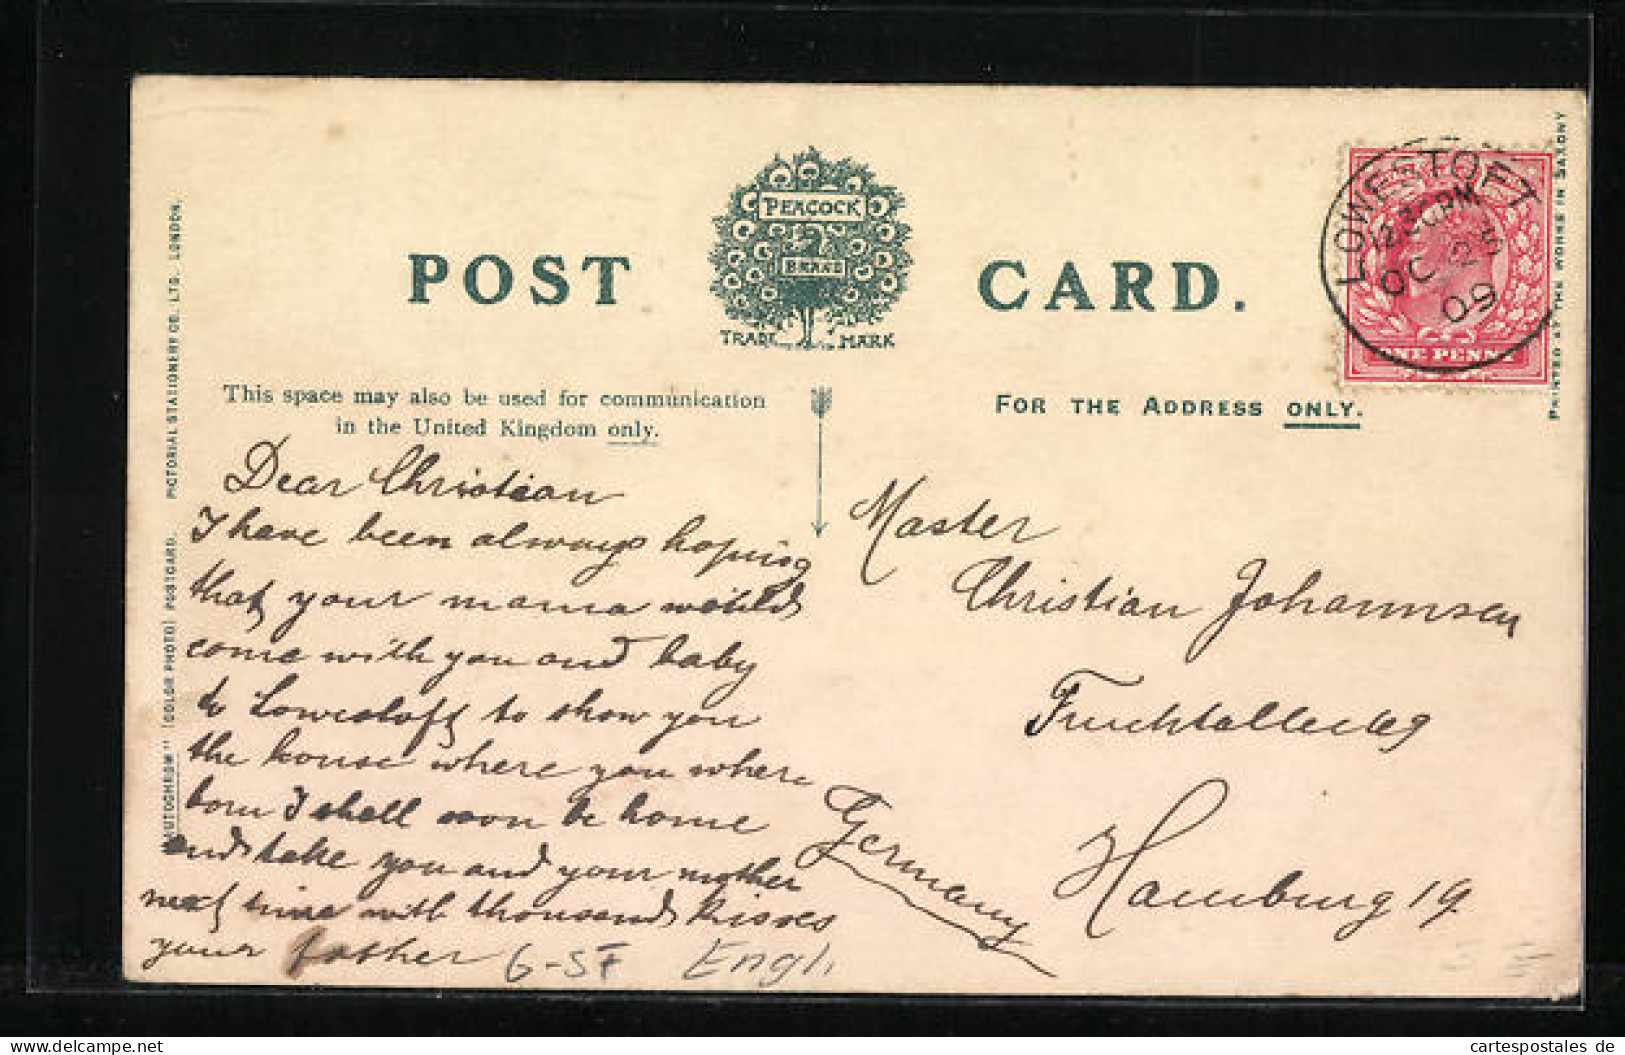 POST CARD.
PEACOCK
BRAND
TRADE MARK
This space may also be used for communication
in the United Kingdom only.
FOR THE ADDRESS ONLY.
LOWESTOFT
12.30PM
OC 25
09
ONE PENNY
PRINTED AT THE WORKS IN SAXONY
"AUTOCHROM" (COLOR PHOTO) POSTCARD. PICTORIAL STATIONERY CO., LTD. LONDON.
Dear Christian
I have been always hoping
that your mama would
come with you and baby
to Lowestoft to show you
the house where you where
born I shall soon be home
and take you and your mother
next time with thousand kisses
your father
6-SF Engl.
Master
Christian Johannsen
Fruchtallee 69
Hamburg 19.
Germany
cartespostales.de
www.delcampe.net